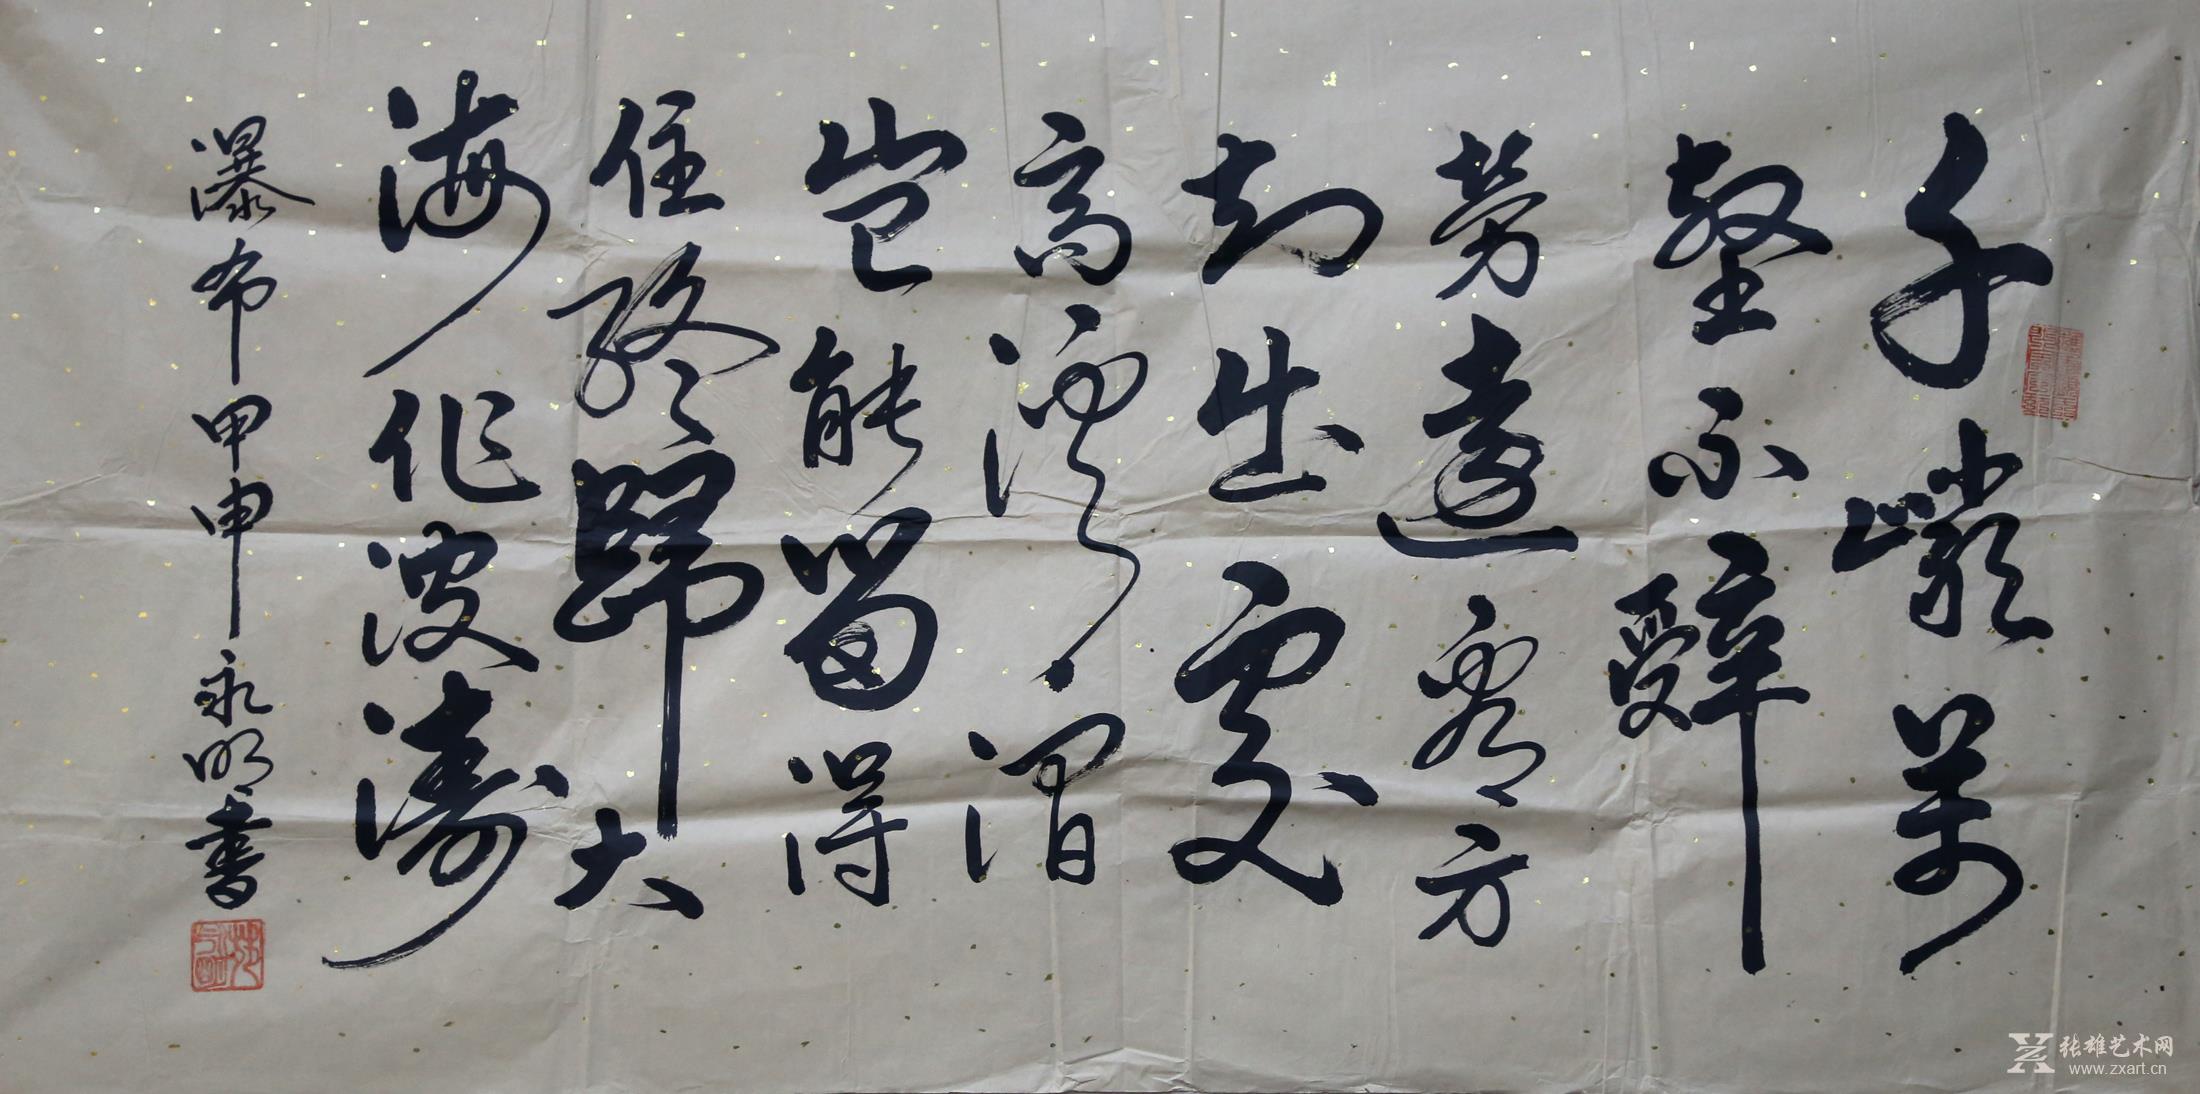 千巖萬
壑不辭
勞遠看方
知出處
高溪澗
豈能留得
住終歸大
海作波濤
瀑布甲申永明書
张雄艺术网
www.zxart.cn